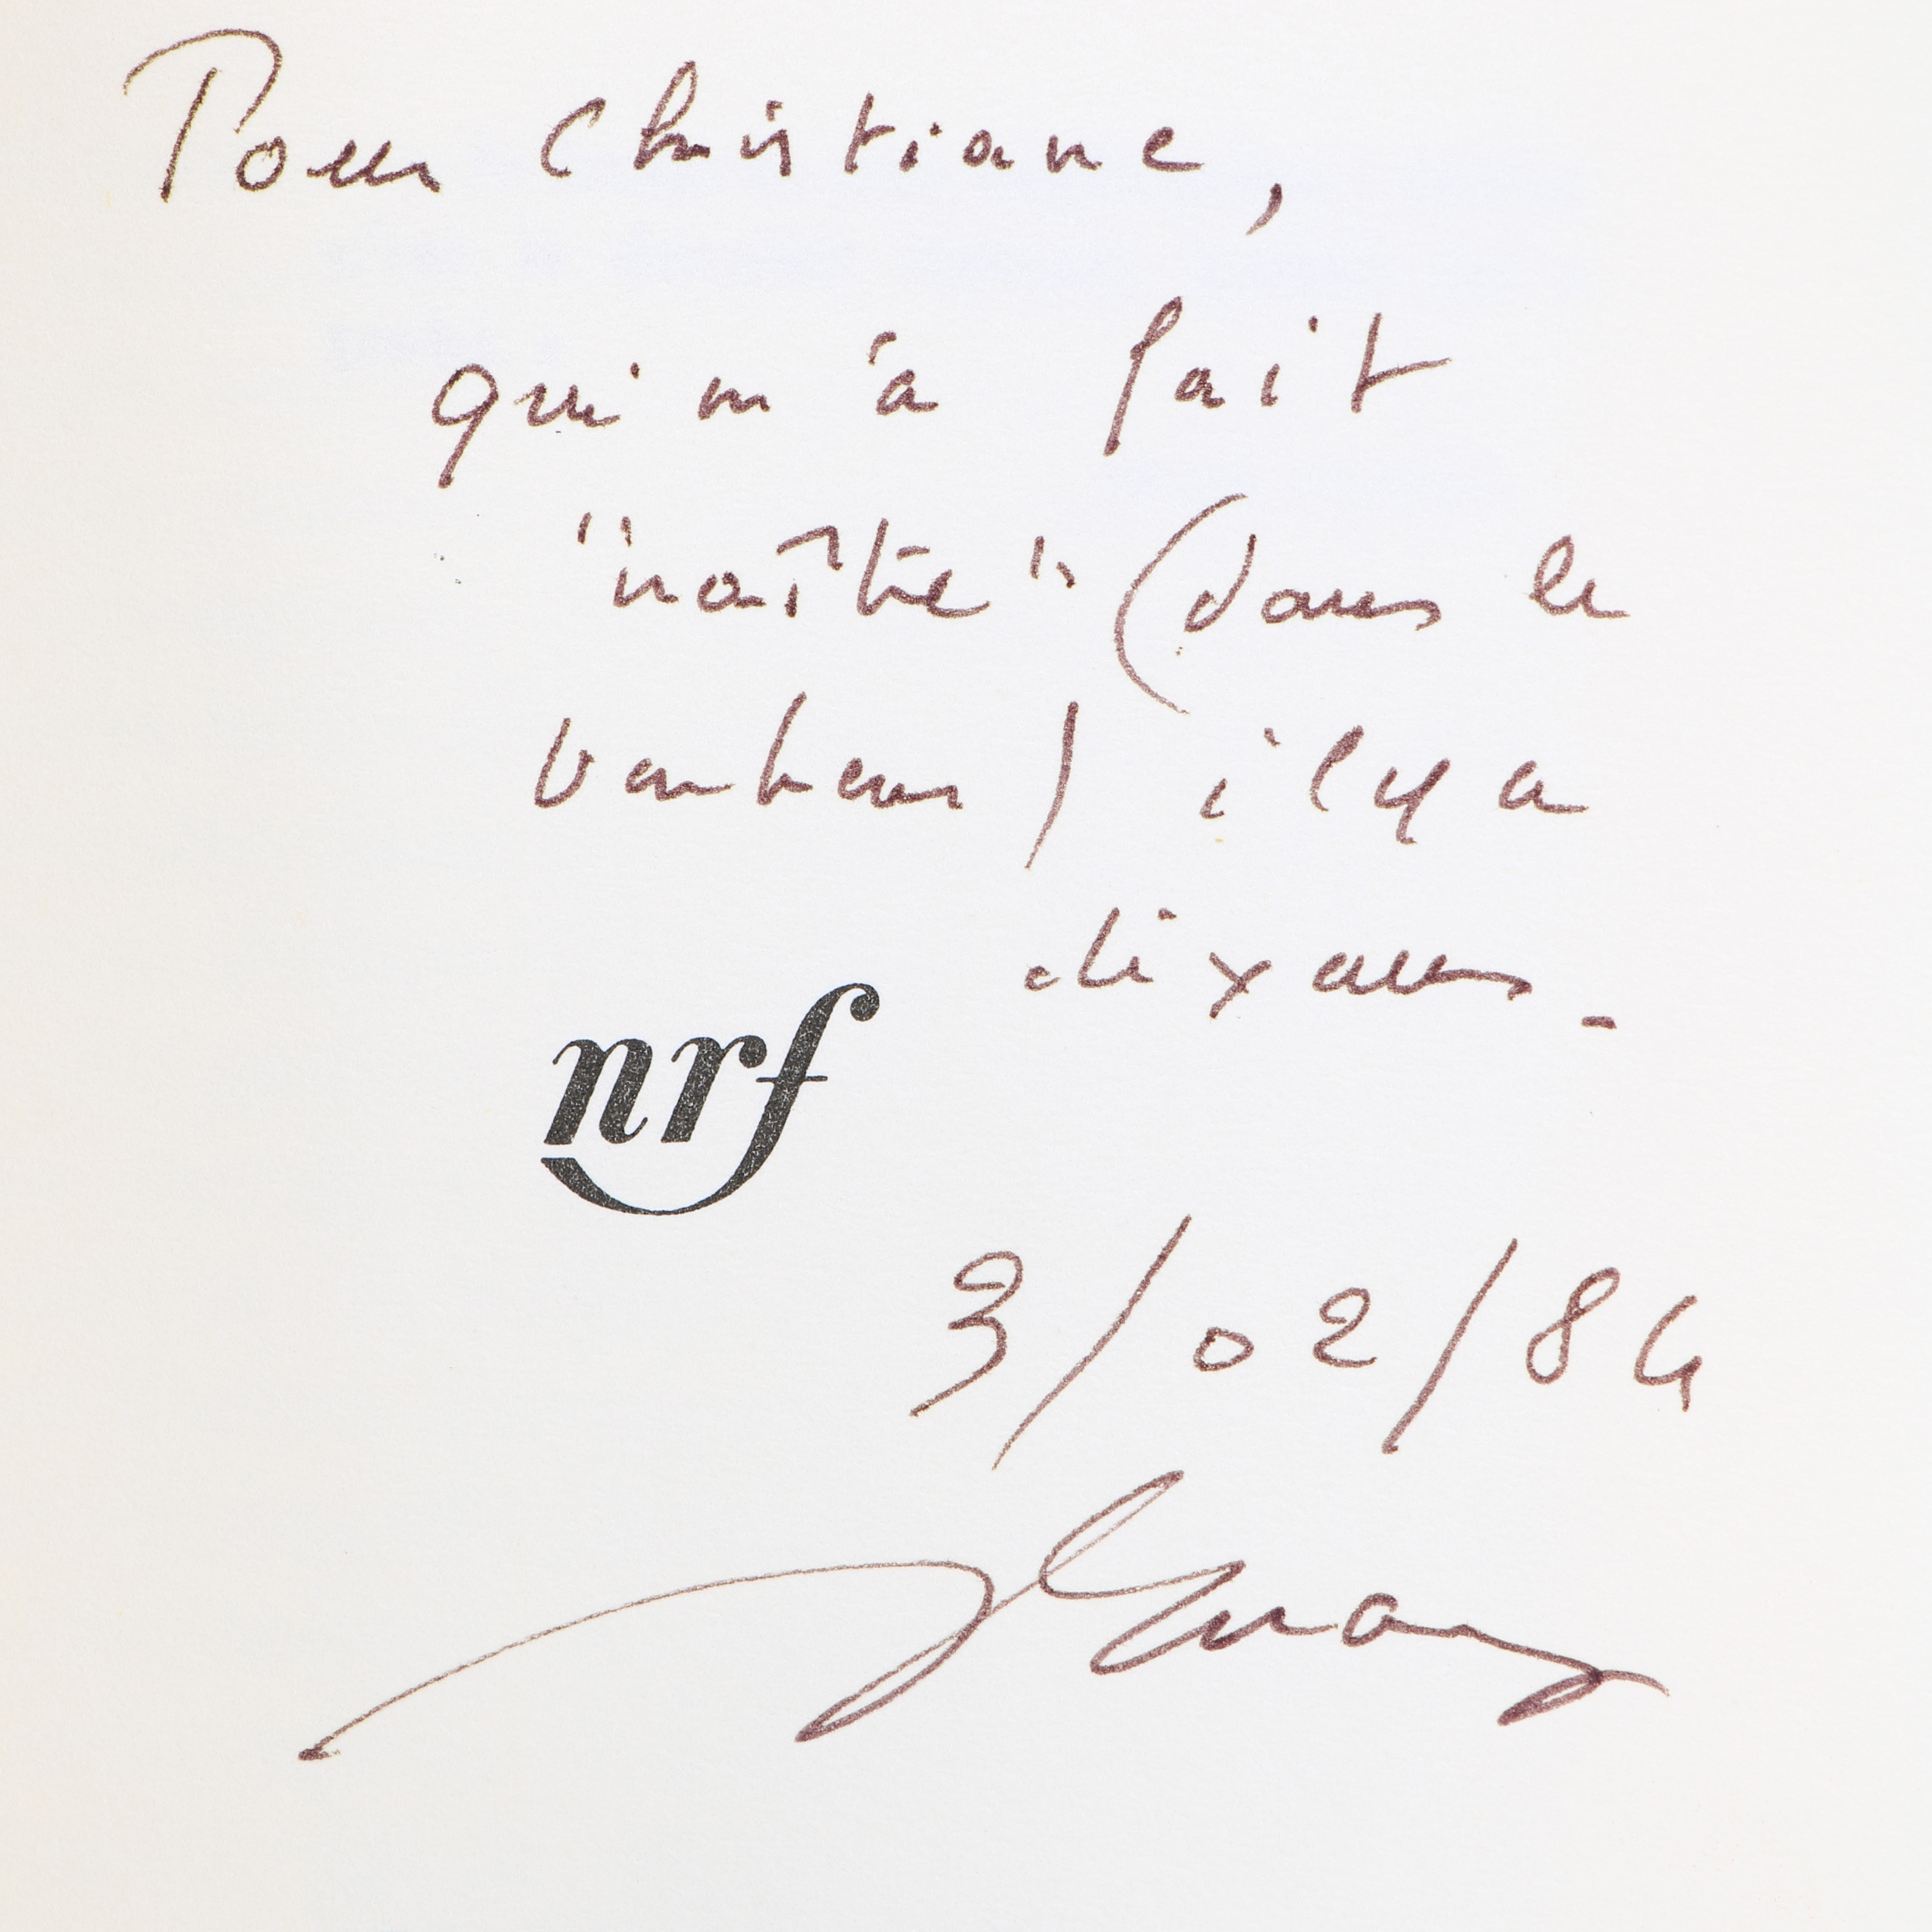 Pour Christiane,
qui m'a fait
"naître" (dans le
bonheur) il y a
dix ans_
nrf
3/02/84